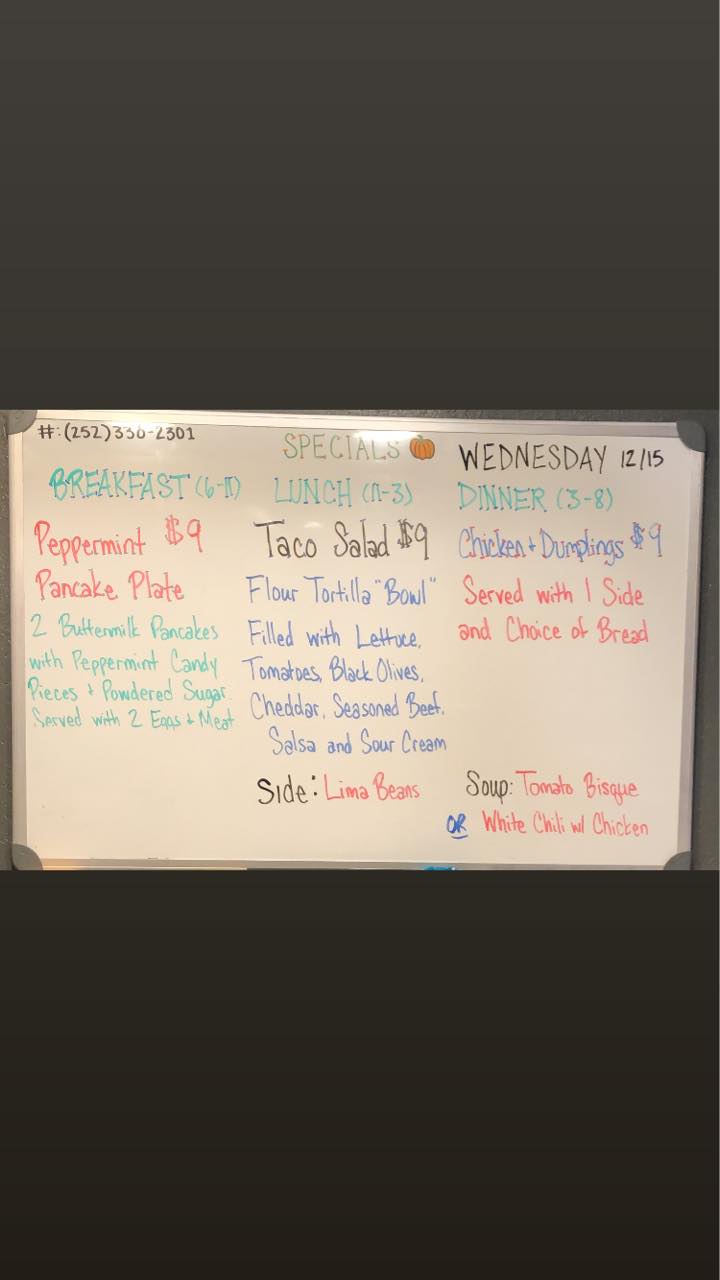 #:(252)330-2301
SPECIALS 🎃
WEDNESDAY 12/15
BREAKFAST (6-11)
Peppermint $9
Pancake Plate
2 Buttermilk Pancakes
with Peppermint Candy
Pieces + Powdered Sugar.
Served with 2 Eggs + Meat
LUNCH (11-3)
Taco Salad $9
Flour Tortilla "Bowl"
Filled with Lettuce,
Tomatoes, Black Olives,
Cheddar, Seasoned Beef,
Salsa and Sour Cream
Side: Lima Beans
DINNER (3-8)
Chicken + Dumplings $9
Served with 1 Side
and Choice of Bread
Soup: Tomato Bisque
OR White Chili w/ Chicken